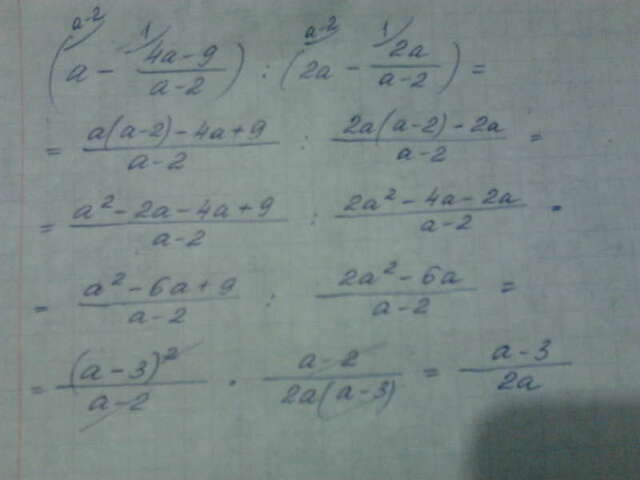 (a^{a-2/} - \frac{4a-9}{a-2}^{1/}) : (2a^{a-2/} - \frac{2a}{a-2}^{1/}) =
= \frac{a(a-2)-4a+9}{a-2} : \frac{2a(a-2)-2a}{a-2} =
= \frac{a²-2a-4a+9}{a-2} : \frac{2a²-4a-2a}{a-2} =
= \frac{a²-6a+9}{a-2} : \frac{2a²-6a}{a-2} =
= \frac{(a-3)²}{a-2} · \frac{a-2}{2a(a-3)} = \frac{a-3}{2a}